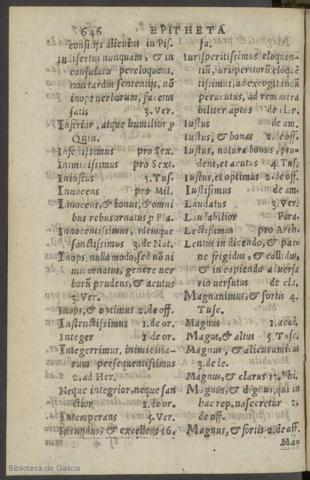 646 EPITHETA
consilijs alicuius in Pis.
Indisertus nunquam, & in
consulatu pereloquens,
non tardus sententijs, nō
inops verborum, facetus
satis 3. Ver.
Inferior, atque humilior p
Quin.
Infestissimus pro Sext.
Inimicissimus pro Sex.
Iniustus 5. Tus.
Innocens pro Mil.
Innocens, & bonus, & omni
bus rebus ornatus p Fla.
Innocentissimus, idemque
sanctissimus 3. de Nat.
Inops nullo modo, sed nō ni
mis ornatus, genere ver
borū prudens, & acutus
3. Ver.
Inops, & optimus 2. de off.
Instructissimus 1. de or.
Integer 1. de or.
Integerrimus, inimicitia-
rum persequentissimus
2. ad Her.
Neque integrior, neque san
ctior 1. de or.
Intemperans 5. Ver.
Iucundus, & excellens 16.
fa.
Iurisperitissimus eloquen-
tiū, iurisperitorū eloquē
tissimus, ad excogitandū
peracutus, ad rem mira
biliter aptus de clar.
Iustus de am.
Iustus, & bonus 2. de off.
Iustus, natura bonus, pru-
dens, et acutus 4. Tus.
Iustus, et optimus 2. de off.
Iustissimus de am.
Laudatus 3. Ver.
Laudabilior Para.
Lectissimus pro Arch.
Lentus in dicendo, & pæ-
ne frigidus, & callidus,
& in capiendo aduersa
rio versutus de cla.
Magnanimus, & fortis 4.
Tusc.
Magnus 1. acad.
Magnus, & altus 5. Tusc.
Magnus, &
3. de le.
Magnus, & clarus
Magnus, & dignus, qui in
hac rep. nasceretur 2.
de off.
Magnus, & fortis 2. de off.
Mag
Biblioteca de Galicia